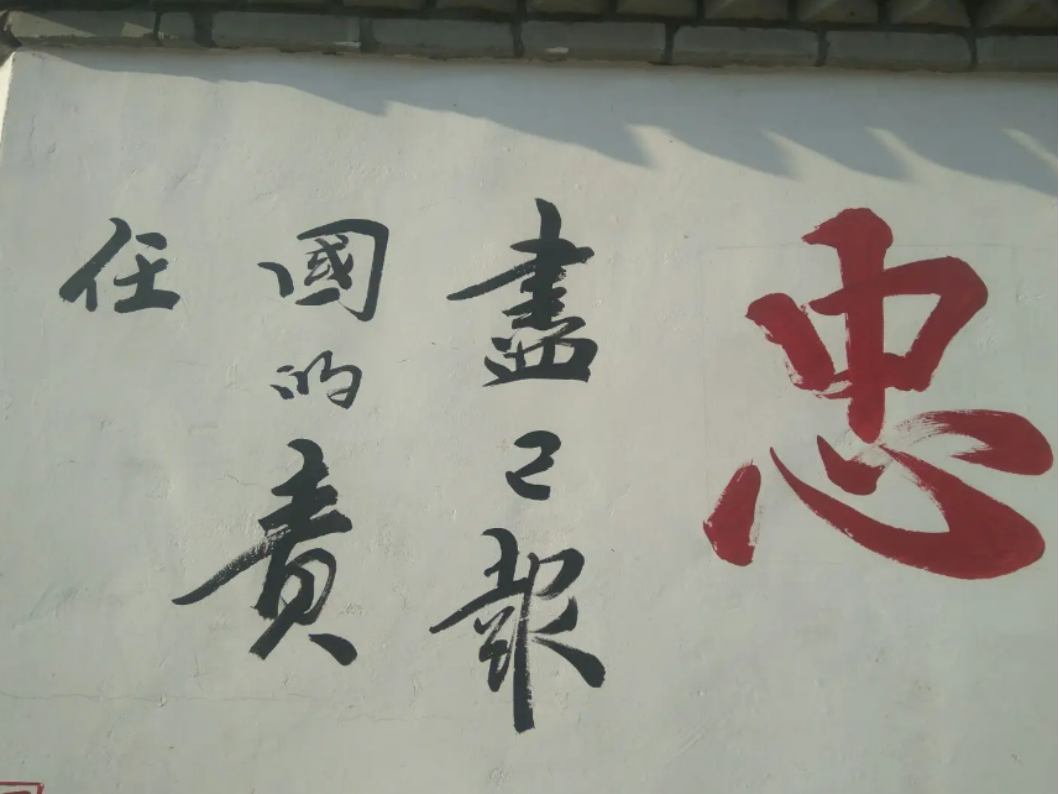 忠
盡己報
國的責
任